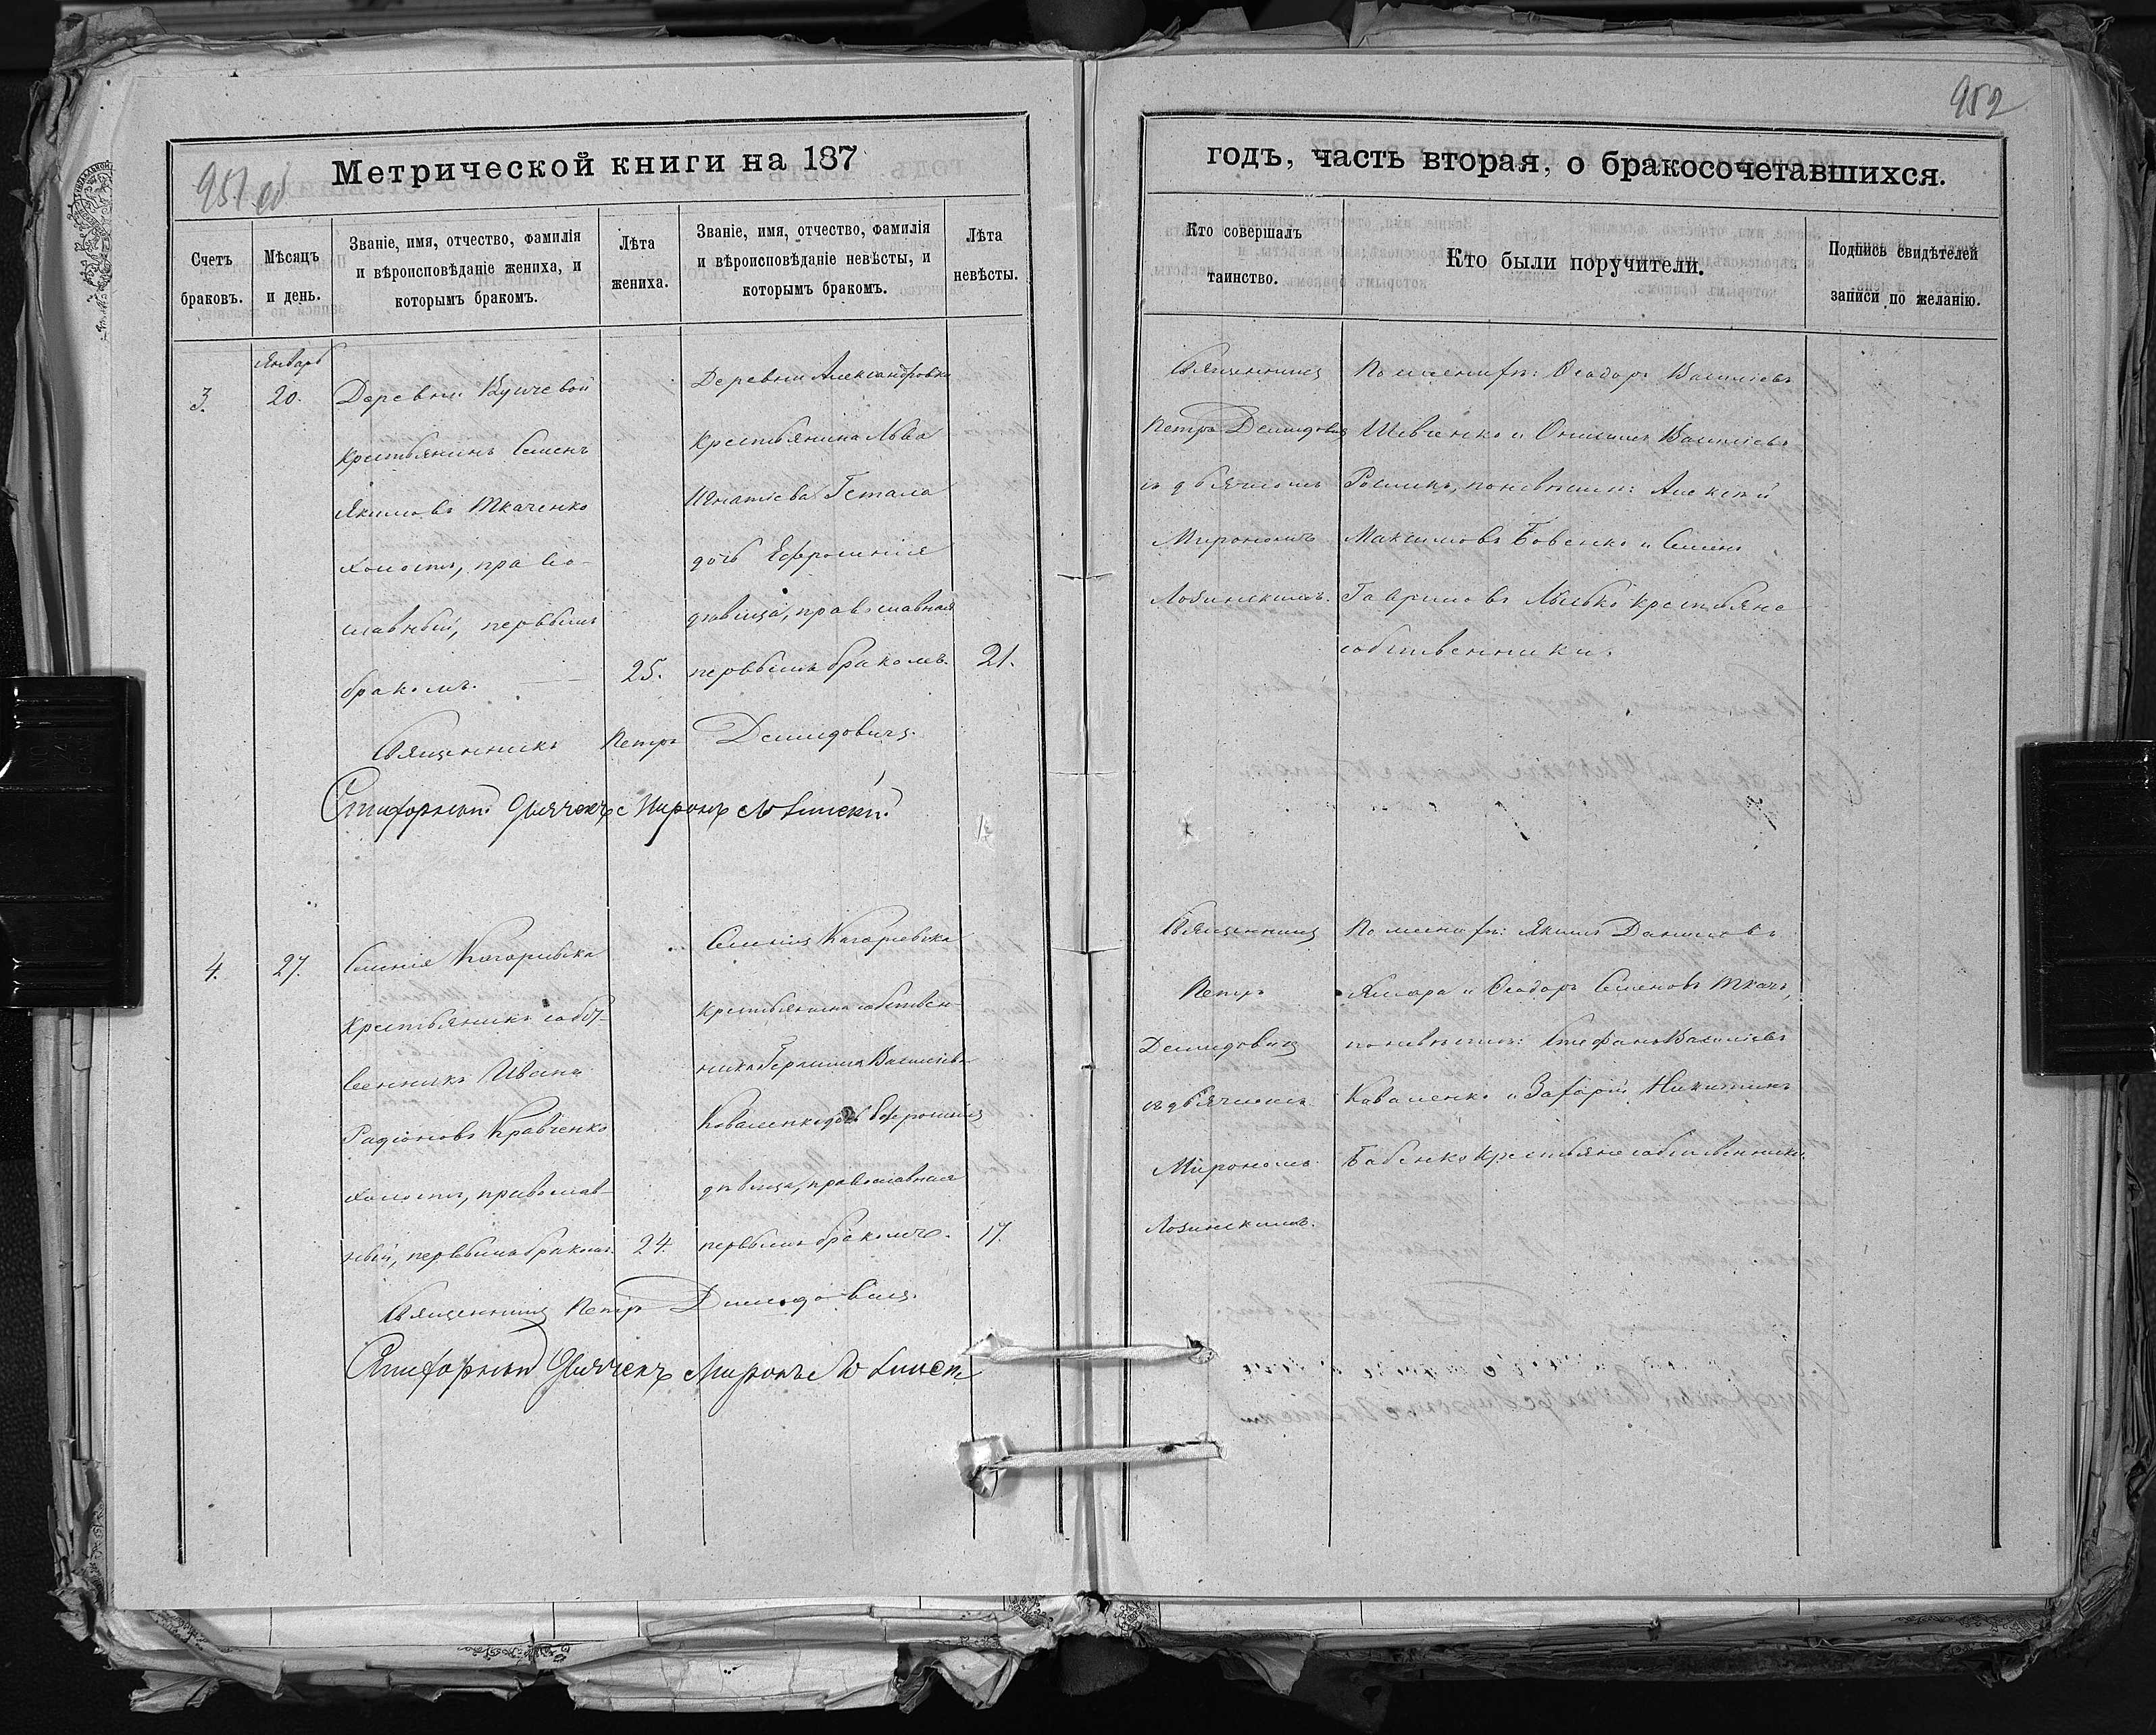 952
951 об
Метрической книги на 187
Счетъ браковъ.
Мѣсяцъ и день.
Званіе, имя, отчество, фамилія
и вѣроисповѣданіе жениха, и
которымъ бракомъ.
Лѣта
жениха.
Званіе, имя, отчество, фамилія
и вѣроисповѣданіе невѣсты, и
которымъ бракомъ.
Лѣта
невѣсты.
3.
Январь
20.
Деревни
крестьянинъ Семенъ
Якимовъ Ткаченко
холостъ, право-
славный, первымъ
бракомъ.
25.
Деревни Александровки
крестьянина Льва
Игнатіева
дочь Ефросинія
дѣвица, православная
первымъ бракомъ.
21.
Священникъ Петръ Демидовичъ.
Дьячекъ Миронъ
4.
27.
Селенія
крестьянинъ собст-
венникъ Иванъ
Радіоновъ Кравченко
холостъ, православ-
ный, первымъ бракомъ.
24.
Селенія
крестьянина собствен-
ника Герасима Василіева
Коваленко дочь Ефросинія
дѣвица, православная
первымъ бракомъ.
17.
Священникъ Петръ Демидовичъ.
Дьячекъ Миронъ
годъ, часть вторая, о бракосочетавшихся.
Кто совершалъ
таинство.
Кто были поручители.
Подпись свидѣтелей
записи по желанію.
Священникъ
Петръ Демидовичъ
съ дьячкомъ
Мирономъ
Лозинскимъ.
По женихѣ: Ѳеодоръ Василіевъ
Шевченко и Онисимъ Василіевъ
по невѣстѣ: Алексѣй
Максимовъ Бовенко и Семенъ
Гавриловъ крестьяне
собственники.
Священникъ
Петръ
Демидовичъ
съ дьячкомъ
Мирономъ
Лозинскимъ.
По женихѣ: Якимъ Даниловъ
и Ѳеодоръ Семеновъ Ткачъ,
по невѣстѣ: Стефанъ Василіевъ
Коваленко и Захарій Никитинъ
Бабенко крестьяне собственники.